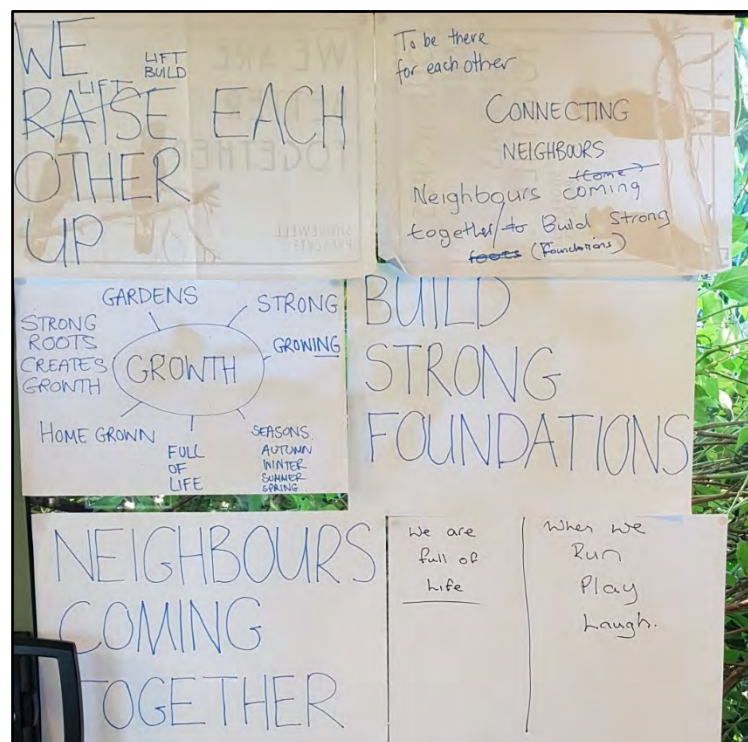 WE
LIFT
BUILD
LIFT
RAISE EACH
OTHER
UP
To be there
for each other
CONNECTING
NEIGHBOURS
(Come)
Neighbours coming
together/to Build Strong
roots (Foundations)
WE ARE
TOGETHER
GARDENS
STRONG
STRONG
ROOTS
CREATES
GROWTH
GROWTH
GROWING
HOME GROWN
FULL
OF
LIFE
SEASONS.
AUTUMN
WINTER
SUMMER
SPRING
BUILD
STRONG
FOUNDATIONS
NEIGHBOURS
COMING
TOGETHER
We are
full of
Life
When we
Run
Play
Laugh.